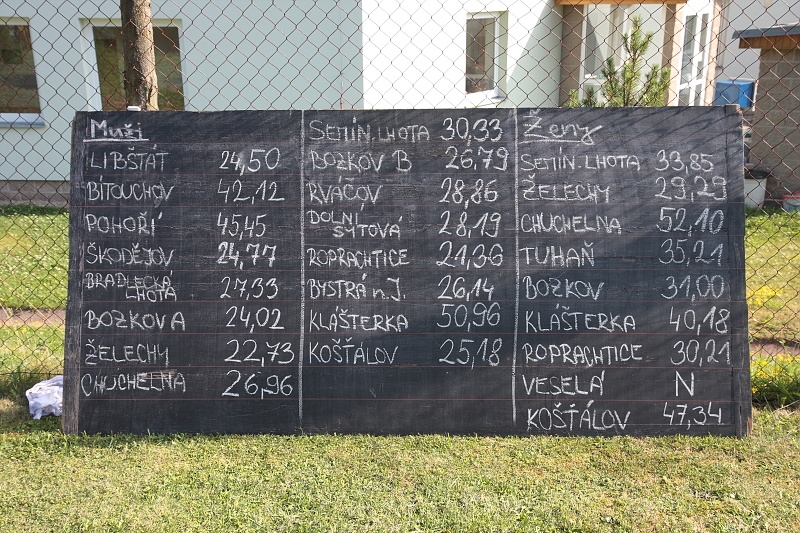 Muži
LIBŠTÁT 24,50
BÍTOUCHOV 42,12
POHOŘÍ 45,45
ŠKODĚJOV 24,77
BRADLECKÁ
LHOTA 27,33
BOZKOV A 24,02
ŽELECHY 22,73
CHUCHELNA 26,96
SEMÍN. LHOTA 30,33
BOZKOV B 26,79
RVÁČOV 28,86
DOLNÍ
SYTOVÁ 28,19
ROPRACHTICE 21,36
BYSTRÁ n.J. 26,14
KLÁŠTERKA 50,96
KOŠŤÁLOV 25,18
Ženy
SEMÍN. LHOTA 33,85
ŽELECHY 29,29
CHUCHELNA 52,10
TUHAŇ 35,21
BOZKOV 31,00
KLÁŠTERKA 40,18
ROPRACHTICE 30,21
VESELÁ N
KOŠŤÁLOV 47,34